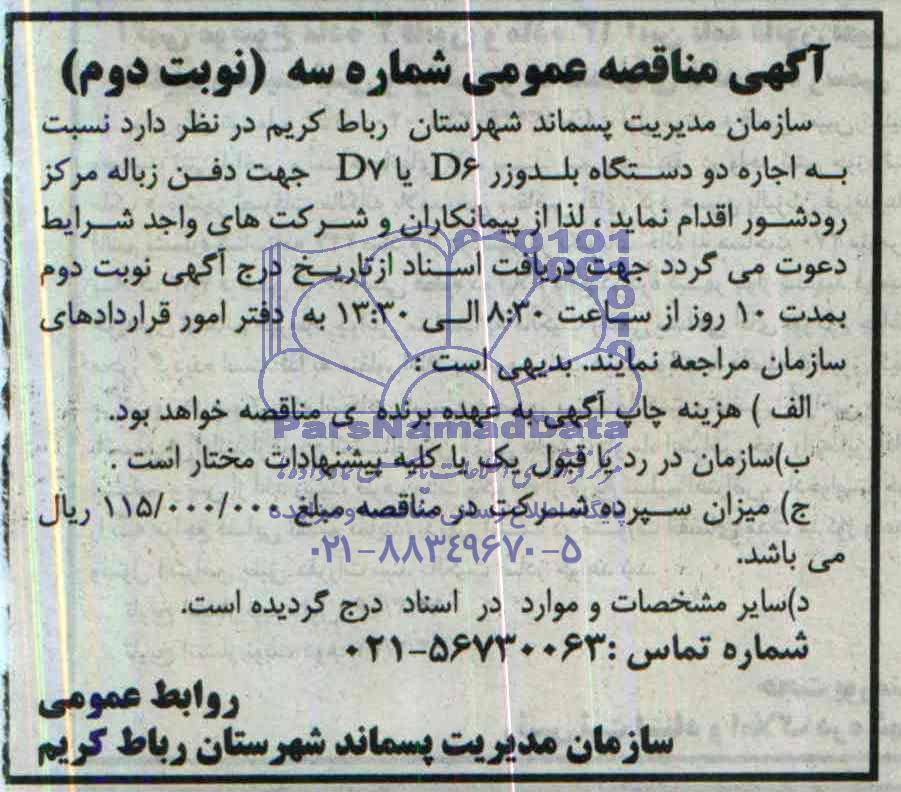 آگهی مناقصه عمومی شماره سه (نوبت دوم)
سازمان مدیریت پسماند شهرستان رباط کریم در نظر دارد نسبت
به اجاره دو دستگاه بلدوزر D۶ یا D۷ جهت دفن زباله مرکز
رودشور اقدام نماید ، لذا از پیمانکاران و شرکت های واجد شرایط
دعوت می گردد جهت دریافت اسناد ازتاریخ درج آگهی نوبت دوم
بمدت ۱۰ روز از ساعت ۸:۳۰ الی ۱۳:۳۰ به دفتر امور قراردادهای
سازمان مراجعه نمایند. بدیهی است :
الف ) هزینه چاپ آگهی به عهده برنده ی مناقصه خواهد بود.
ParsNamadData
ب)سازمان در رد یا قبول یک یا کلیه پیشنهادات مختار است .
ج) میزان سپرده شرکت در مناقصه مبلغ ۱۱۵/۰۰۰/۰۰۰ ریال
می باشد.
۰۲۱-۸۸۳۴۹۶۷۰-۵
د)سایر مشخصات و موارد در اسناد درج گردیده است.
شماره تماس :۵۶۷۳۰۰۶۳-۰۲۱
روابط عمومی
سازمان مدیریت پسماند شهرستان رباط کریم